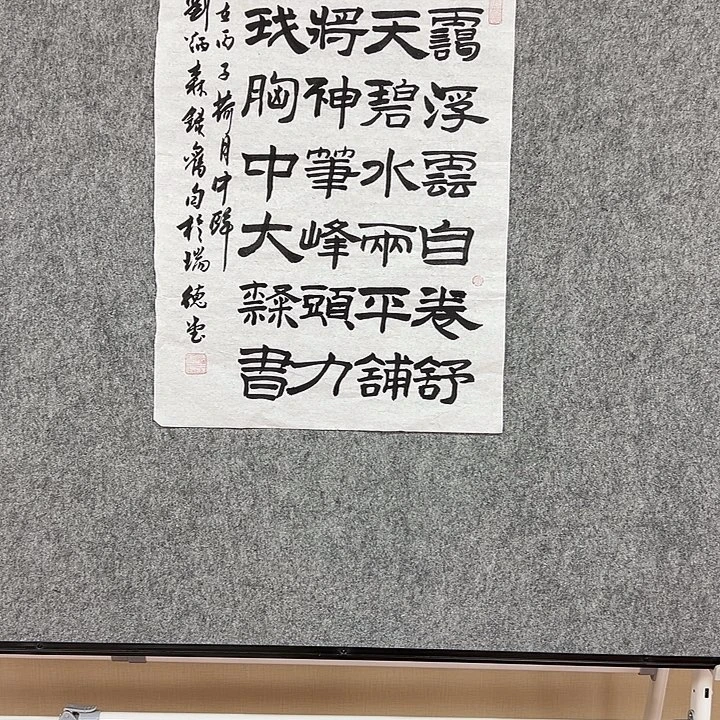 靄浮雲自卷舒
天碧水兩平鋪
將神筆峰頭力
我胸中大隸書
在丙子荷月中澣
劉炳森錄舊句於瑞德堂